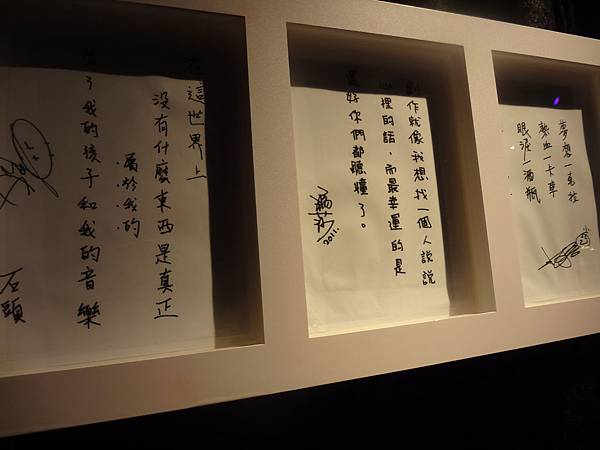 在這世界上
沒有什麼東西是真正
屬於我的
了我的孩子和我的音樂
石頭
創作就像我想找一個人說說
心裡的話，而最幸運的是
還好你們都聽懂了。
瑪莎
2011.
夢想一
熱血一卡
眼淚一酒瓶